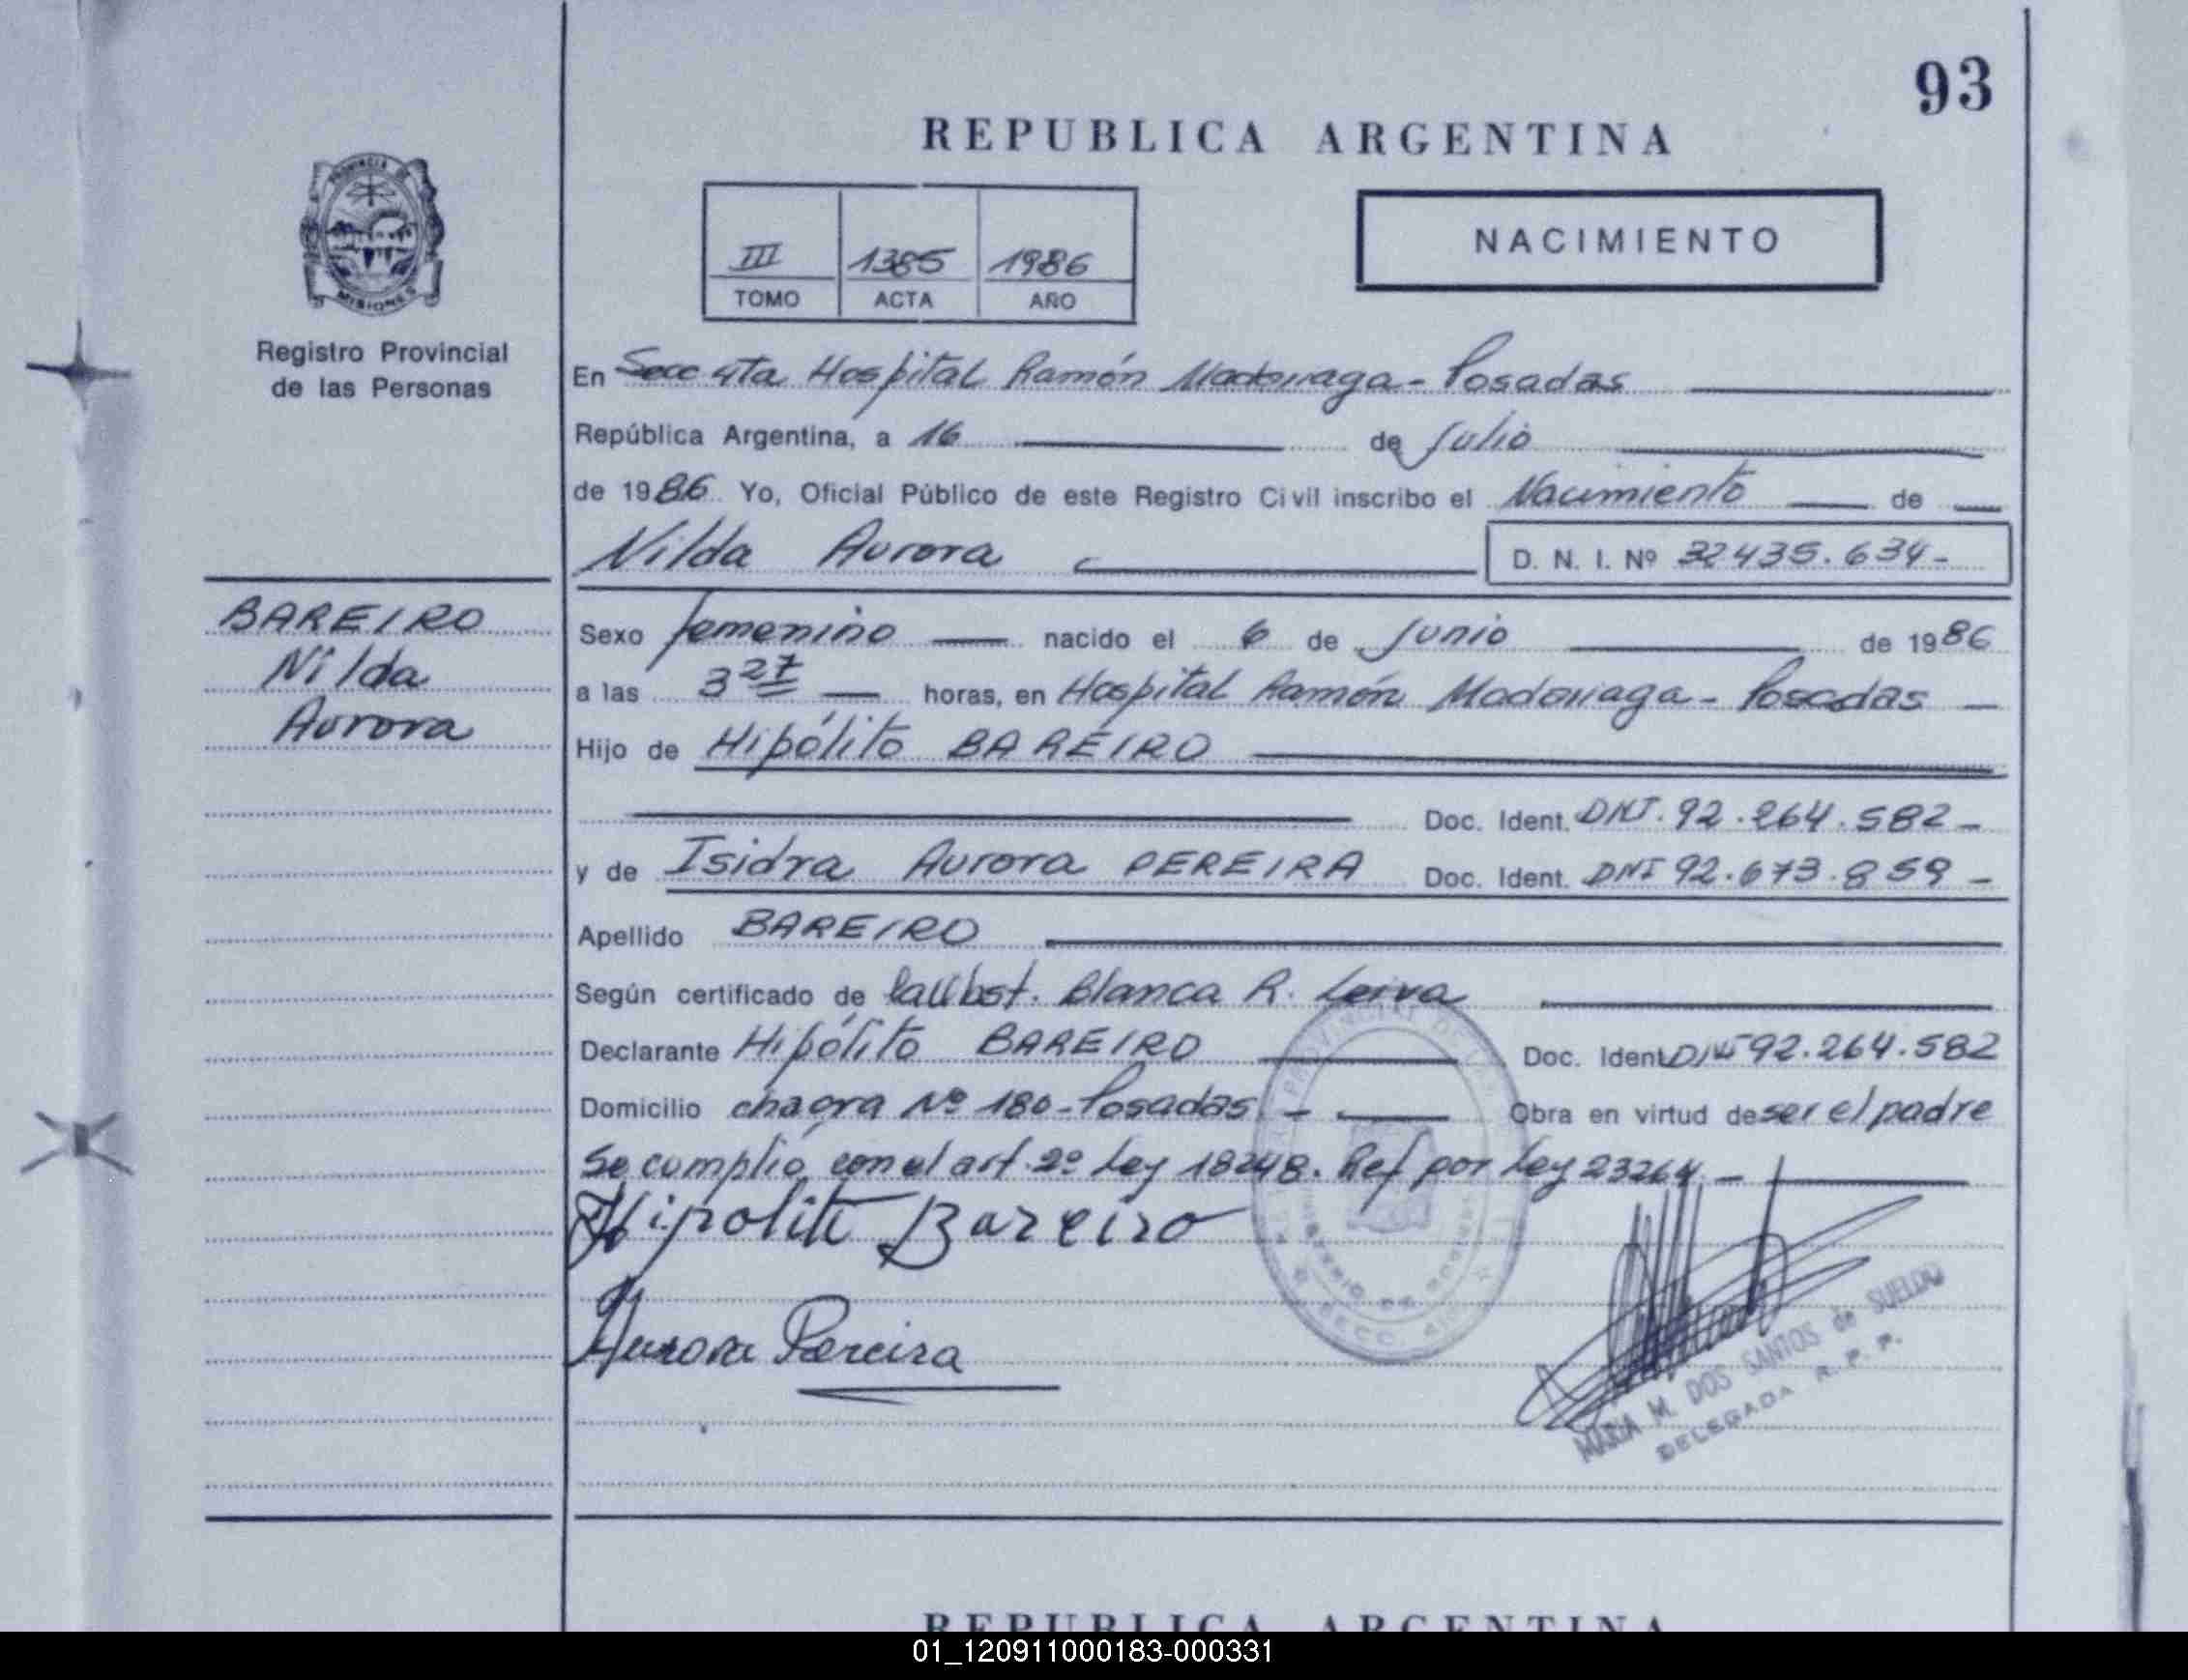 93
REPUBLICA ARGENTINA
PROVINCIA DE
MISIONES
Registro Provincial
de las Personas
III 1385 1986
TOMO ACTA AÑO
NACIMIENTO
En Secc 4ta Hospital Ramón Madariaga - Posadas
República Argentina, a 16 de Julio
de 1986 Yo, Oficial Público de este Registro Civil inscribo el Nacimiento de
Nilda Aurora
D. N. I. Nº 32435.634-
BAREIRO
Nilda
Aurora
Sexo femenino nacido el 6 de Junio de 1986
a las 3 27 horas, en Hospital Ramón Madariaga - Posadas
Hijo de Hipólito BAREIRO
Doc. Ident. DNI. 92.264.582-
y de Isidra Aurora PEREIRA Doc. Ident. DNI 92.673.859-
Apellido BAREIRO
Según certificado de Blanca R. Leiva
Declarante Hipólito BAREIRO Doc. Ident. DNI 92.264.582
Domicilio chacra Nº 180-Posadas.- Obra en virtud de ser el padre
Se cumplió con el art. 2º Ley 18248. Ref por Ley 23264.-
Hipolito Bareiro
Aurora Pereira
MARIA M. DOS SANTOS de SUELDO
DELEGADA R. P. P.
REPUBLICA ARGENTINA
01_120911000183-000331